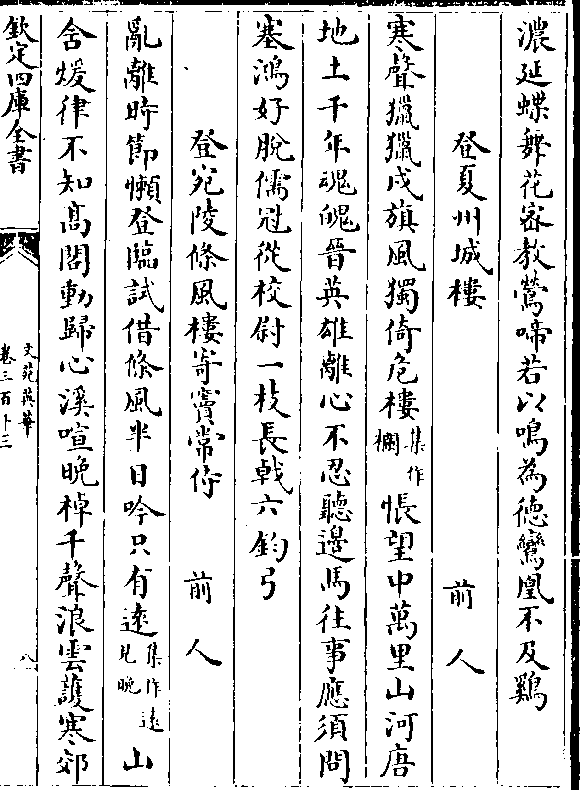 濃延蝶舞花密教鶯啼若以鳴為徳鸞凰不及鷄
登夏州城樓 前人
寒聲獵獵戍旗風獨倚危樓集作欄悵望中萬里山河唐
地土千年魂魄晉英雄離心不忍聽邊馬往事應須問
塞鴻好脫儒冠從校尉一枝長戟六鈞弓
登宛陵條風樓寄竇常侍 前人
亂離時節懶登臨試借條風半日吟只有遠集作遠見晚山
舍煖律不知高閣動歸心溪喧晚棹千聲浪雲護寒郊
欽定四庫全書
文苑英華
卷三百十三
八